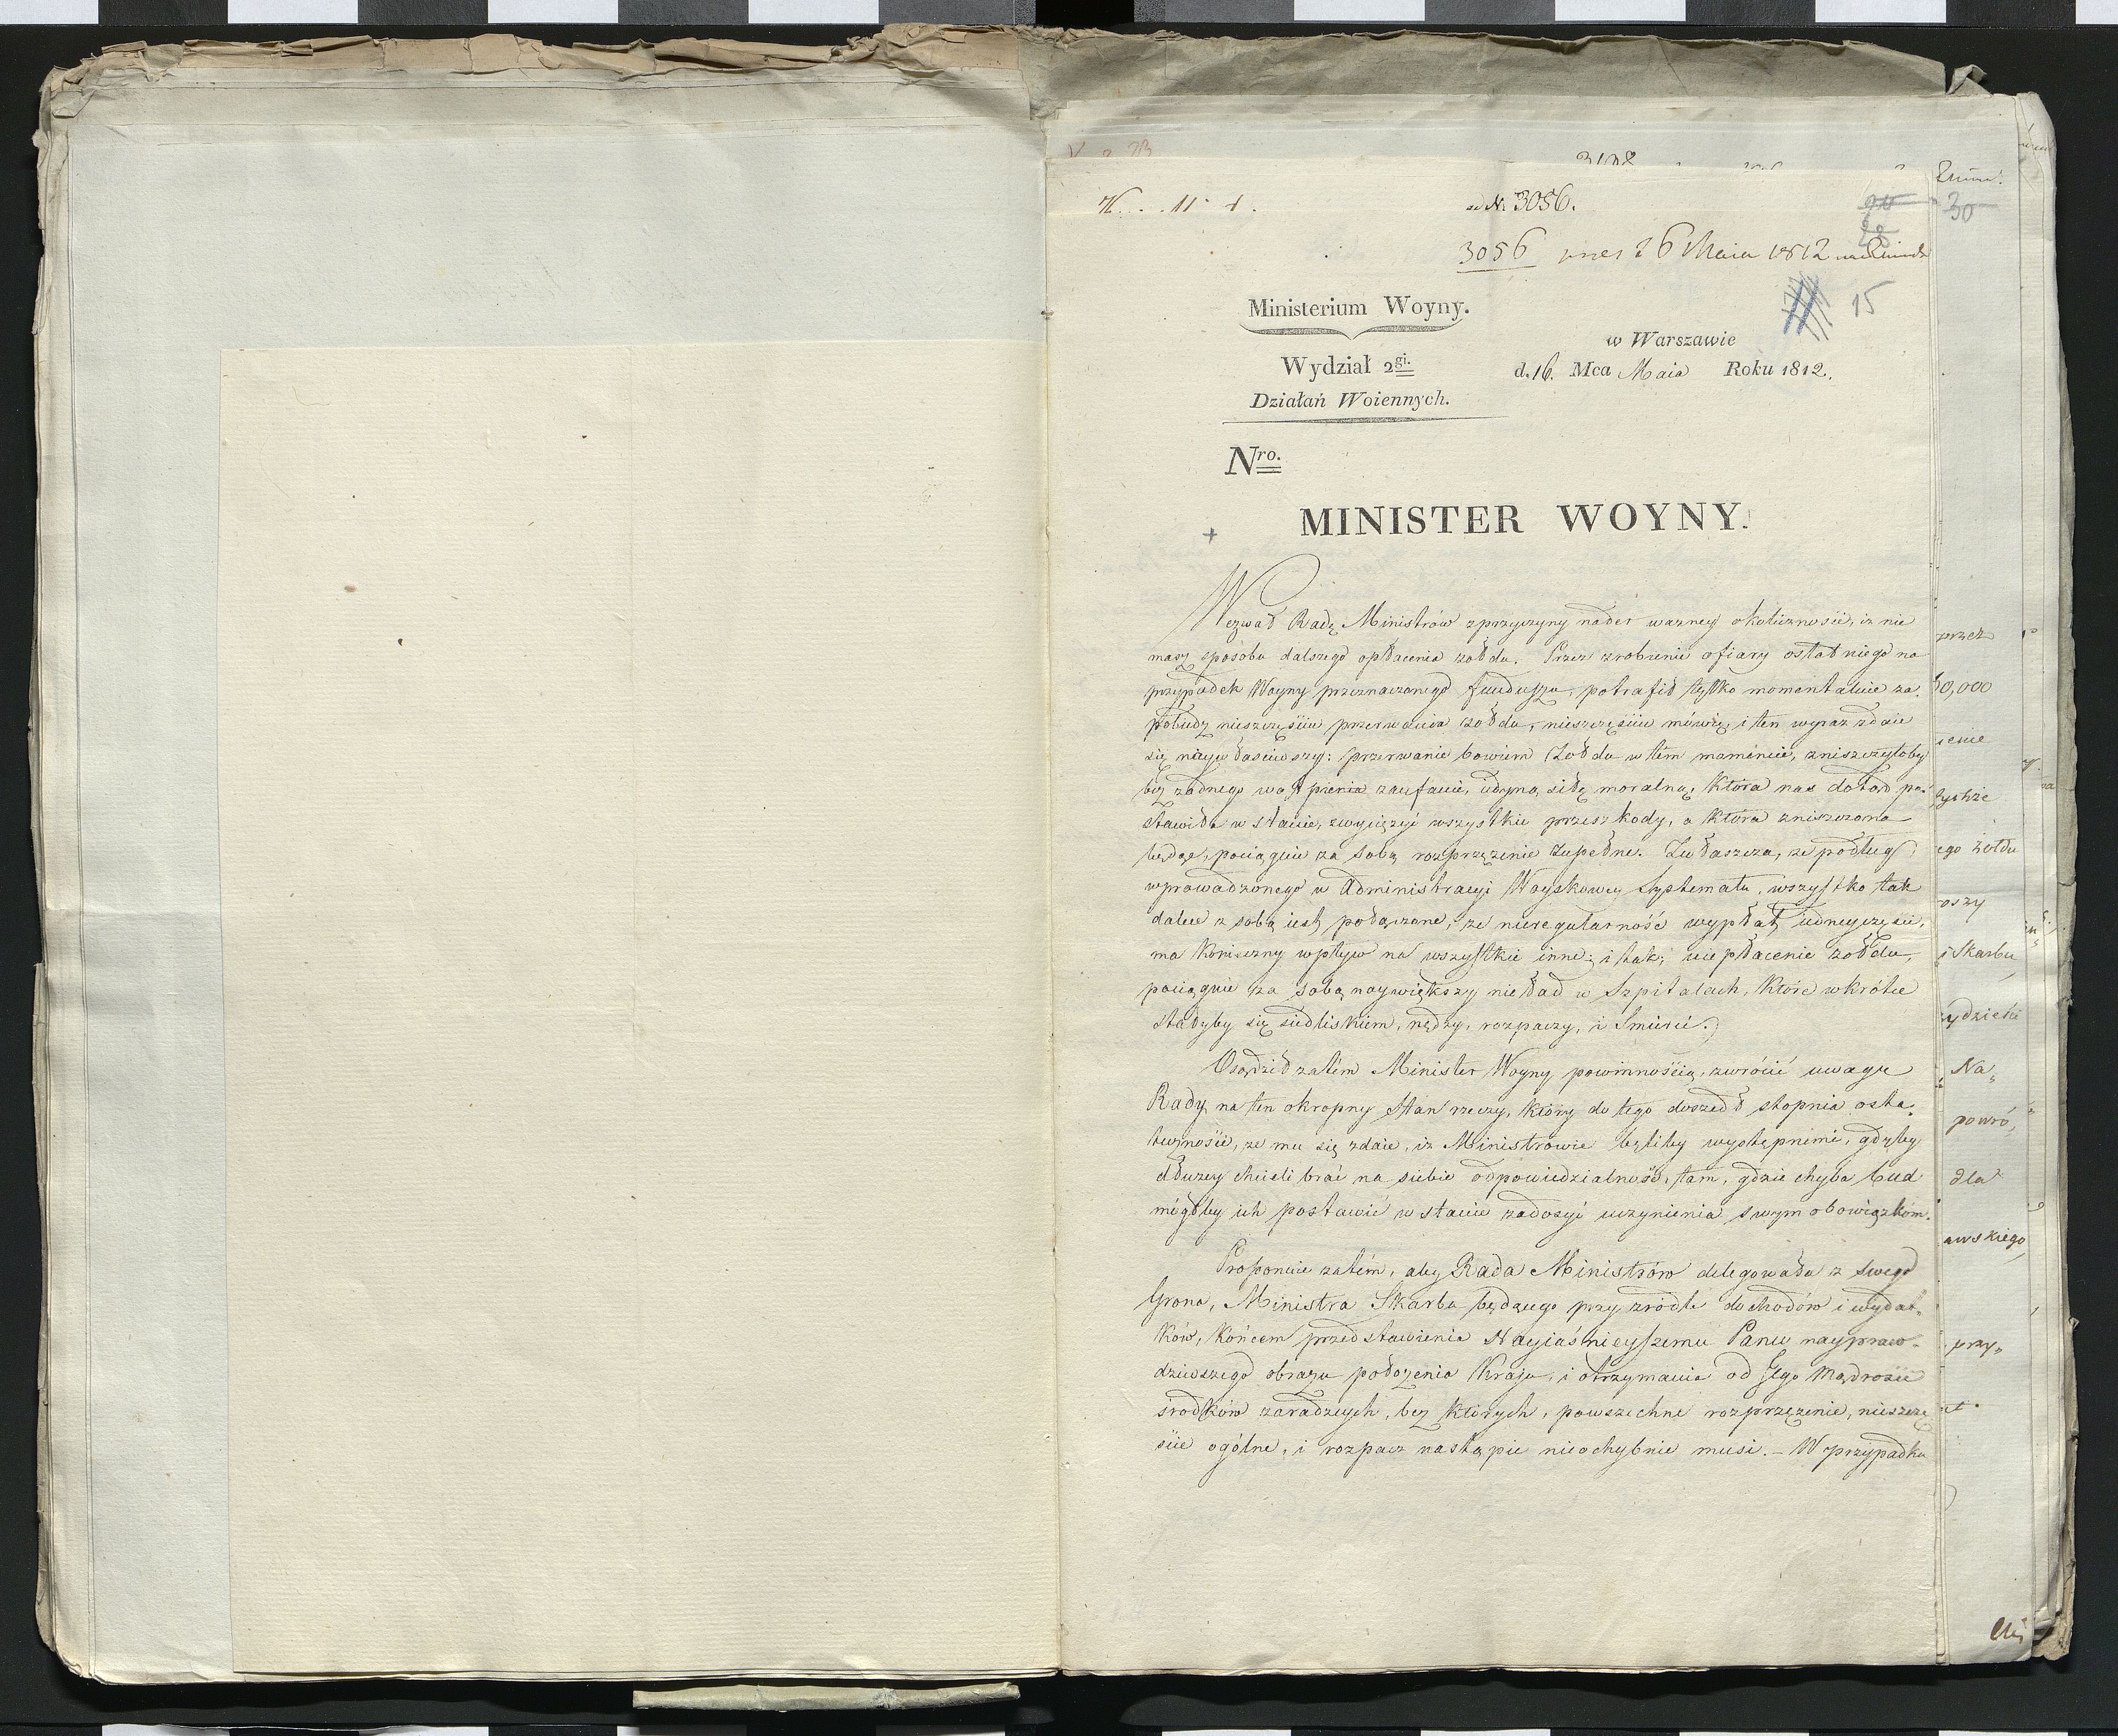 ad Nr 3056.
3056 pres 26 Maia 1812
30
28
15
Ministerium Woyny.
w Warszawie
Wydział 2gi.
d. 16. Mca Maia Roku 1812.
Działań Woiennych.
Nro.
MINISTER WOYNY.
Wezwał Radę Ministrów z przyczyny nader ważney okoliczności, iż nie
masz sposobu dalszego opłacenia żołdu. Przez zrobienie ofiary ostatniego na
przypadek Woyny przeznaczonego funduszu, potrafił tylko momentalnie za-
pobiedz nieszczęściu przerwania żołdu, nieszczęściu mówię, i ten wyraz zdaie
się naywłaściwszy: przerwanie bowiem żołdu w tem momencie, zniszczyłoby
bez żadnego wątpienia zaufanie, iedyną siłę moralną, która nas dotąd po-
stawiła w stanie, zwyciężyć wszystkie przeszkody, a która zniszczona
będąc, pociągnie za sobą rozprzężenie zupełne. Zwłaszcza, że podług
wprowadzonego w Administracyi Woyskowey Systematu, wszystko tak
dalece z sobą iest połączone, że nieregularność wypłaty iedney części,
ma konieczny wpływ na wszystkie inne; i tak; nie płacenie żołdu,
pociągnie za sobą naywiększy nieład w Szpitalach, które wkrótce
stałyby się siedliskiem, nędzy, rozpaczy, i Śmierci.)
Osądził zatém Minister Woyny powinnością, zwrócić uwagę
Rady na ten okropny stan rzeczy, który do tego doszedł stopnia osta-
teczności, że mu się zdaie, iż Ministrowie byliby występnemi, gdyby
dłużey chcieli brać na siebie odpowiedzialność, tam, gdzie chyba Cud
mógłby ich postawić w stanie zadosyć uczynienia swym obowiązkom.
Proponuie zatém, aby Rada Ministrów delegowała z swego
Grona, Ministra Skarbu będącego przy źródle dochodów i wydat-
ków, końcem przedstawienia Nayiaśnieyszemu Panu naypraw-
dziwszego obrazu położenia Kraju, i otrzymania od Jego Mądrości
środków zaradczych, bez których, powszechne rozprzężenie, nieszczę
ście ogólne, i rozpacz nastąpić nieochybnie musi. - W przypadku
30
przez
50,000
ego żołdu
oszy
i Skarbu
Na
powró,
dla
awskiego
przy,